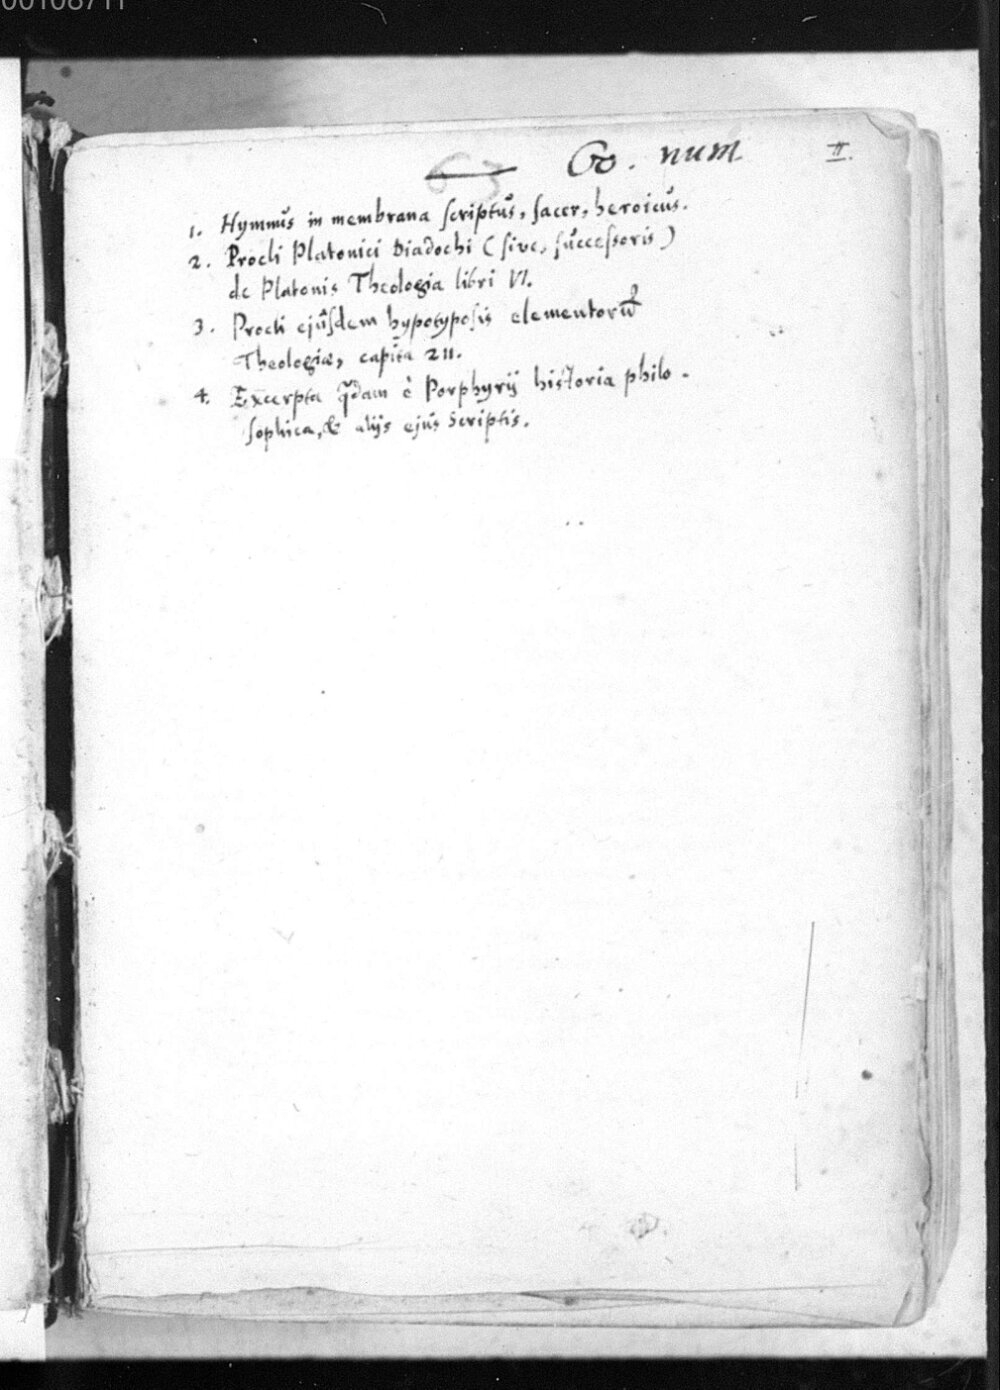 00108711
63 60. num II.
1. Hymnus in membrana scriptus, sacer, heroicus.
2. Procli Platonici Diadochi (sive, successoris)
de Platonis Theologia libri VI.
3. Procli ejusdem hypotyposis elementorũ
Theologiæ, capita 211.
4. Excerpta q̃dam è Porphyrij historia philo-
sophica, & alijs ejus scriptis.